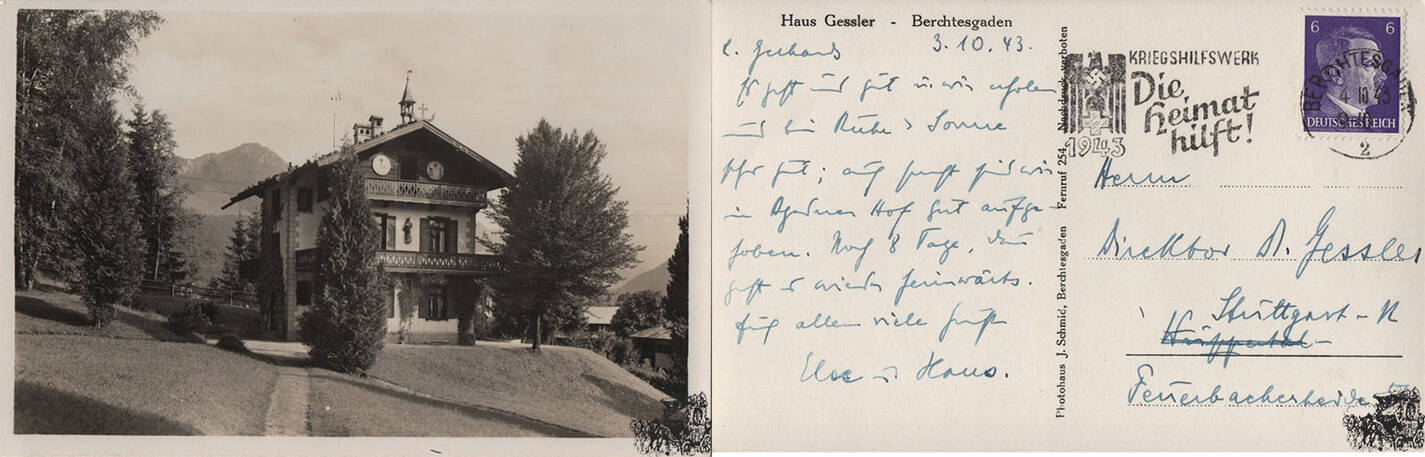 Haus Gessler - Berchtesgaden
3.10.43.
L. Gerhards
Es geht uns gut u. wir erholen
uns bei Ruhe & Sonne
sehr gut; auch sonst sind wir
in Hof gut aufge-
hoben. Noch 8 Tage, dann
geht es wieder heimwärts.
Für allen viele Grüße
Else u. Hans.
Photohaus J. Schmid, Berchtesgaden Fernruf 254 Nachdruck verboten
KRIEGSHILFSWERK
Die
Heimat
hilft!
1943
6 6
DEUTSCHES REICH
BERCHTESGADEN
4.10.43
2
Herrn
Direktor D. Gessler
Stuttgart-N
Feuerbacherheide